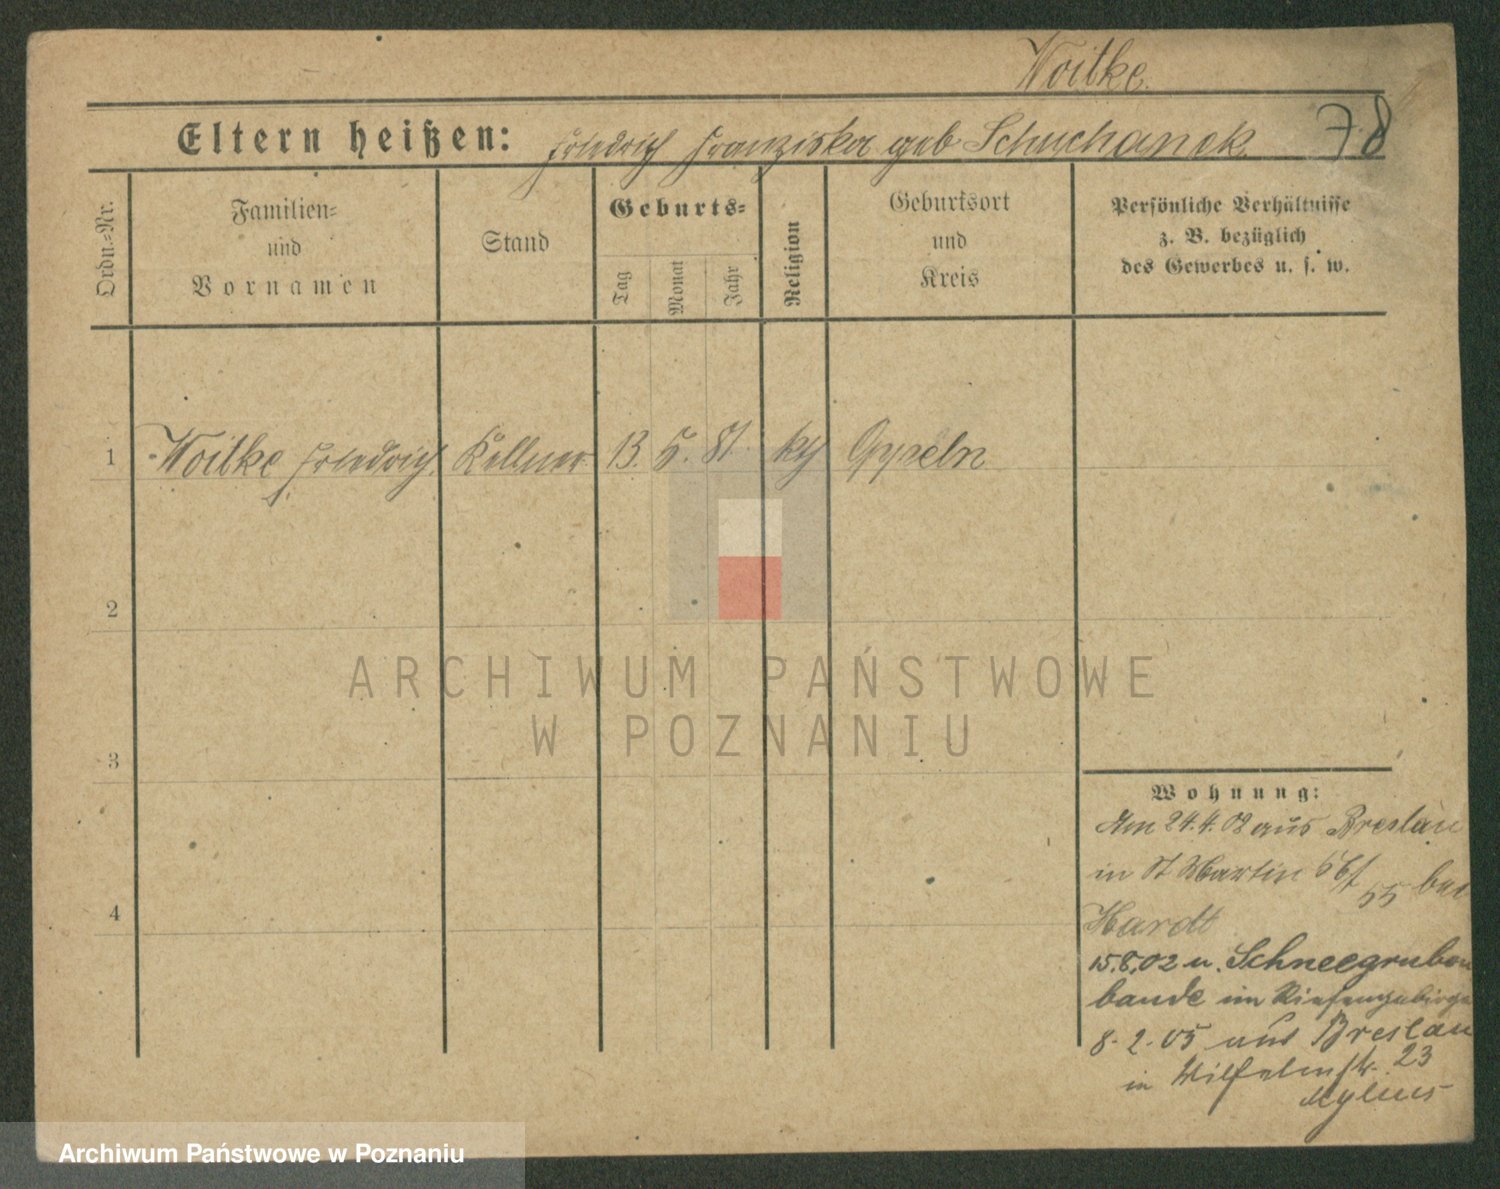 Woitke.
Eltern heißen: Friedrich Franziska geb Schuchanek
78
Ordn.-Nr.
Familien-
und
Vornamen
Stand
Geburts-
Tag
Monat
Jahr
Religion
Geburtsort
und
Kreis
Persönliche Verhältnisse
z. B. bezüglich
des Gewerbes u. s. w.
1 Woitke Friedrich Kellner 13. 5. 81 kth
2
ARCHIWUM PAŃSTWOWE
W POZNANIU
3
4
Wohnung:
Am 24.4.02 aus Breslau
in St Martin
55 bei
Hardt
15.8.02 n. Schneegruben
baude im Riesengebirge
8.2.05 aus Breslau
in Wilhelmstr. 23
Mylius
Archiwum Państwowe w Poznaniu